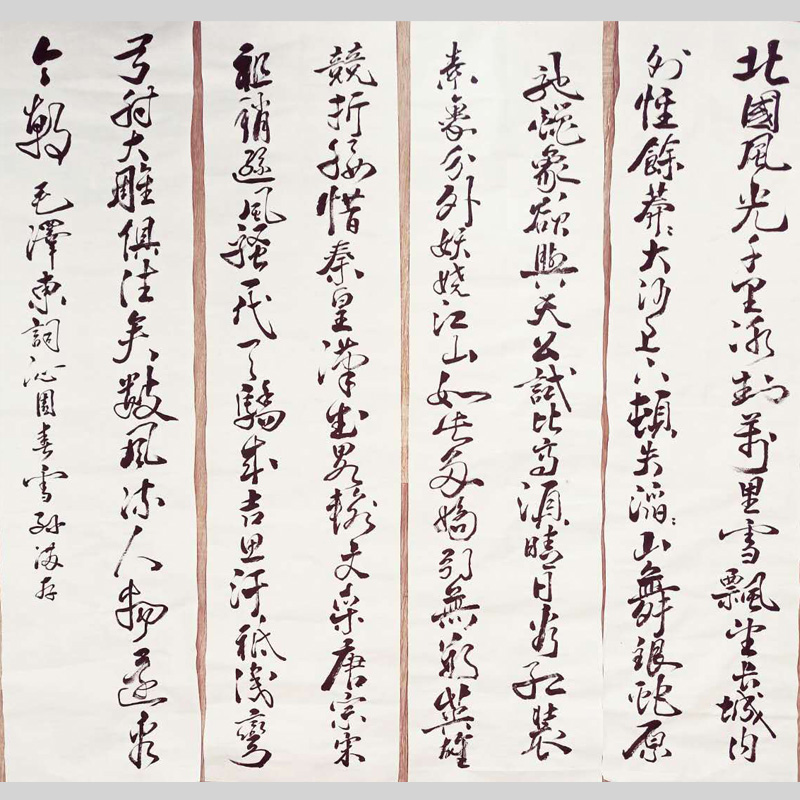 北國風光千里冰封萬里雪飄望長城内
外惟餘莽々大河上下頓失滔々山舞銀蛇原
馳蠟象欲與天公試比高須晴日看紅裝
素裹分外妖嬈江山如此多嬌引無數英雄
競折腰惜秦皇漢武畧輸文采唐宗宋
祖稍遜風騷一代天驕成吉思汗祗識彎
弓射大雕俱往矣數風流人物還看
今朝 毛澤東詞沁園春雪 孫